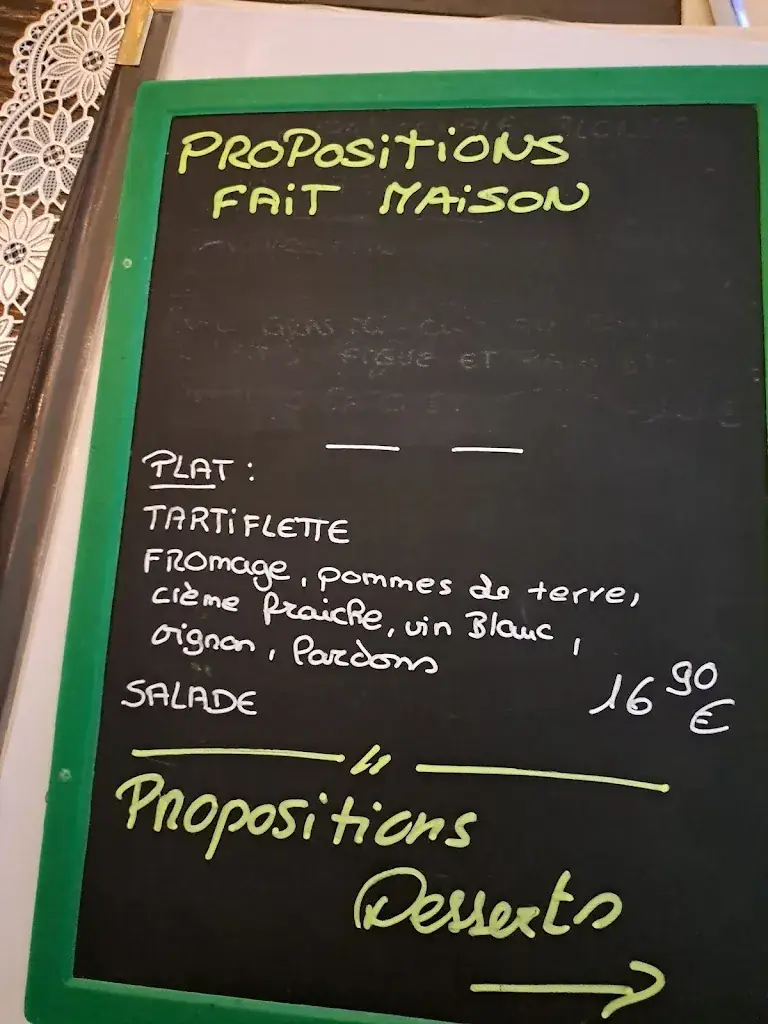 PROPOSITIONS
FAIT MAISON
FIGUE ET
PLAT :
TARTIFLETTE
FROmage, pommes de terre,
crème fraiche, vin Blanc,
oignon, lardons
SALADE 16 90 €
Propositions
Desserts